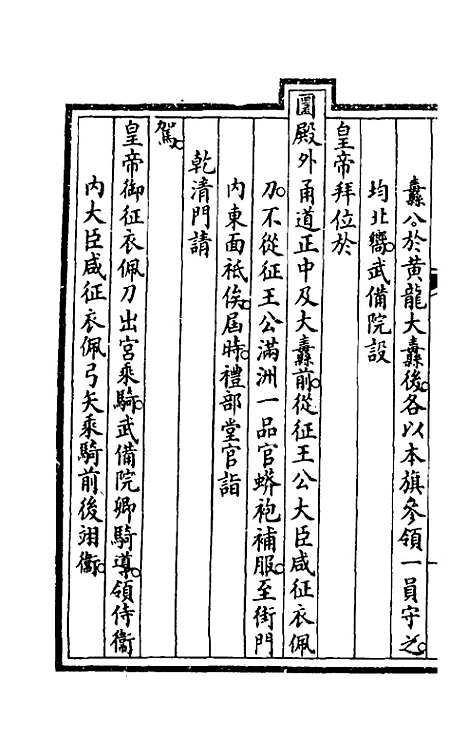 纛公於黄龍大纛後。各以本旗叅領一員守之。
均北嚮。武備院設
皇帝拜位於
圜殿外甬道正中及大纛前。從征王公大臣咸征衣佩
刀。不從征王公滿洲一品官蟒袍補服。至街門
内東面祗俟。屆時。禮部堂官詣
乾清門請
駕。
皇帝御征衣佩刀出宮乘騎。武備院卿騎導。領侍衞
内大臣咸征衣佩弓矢乘騎前後翊衞。